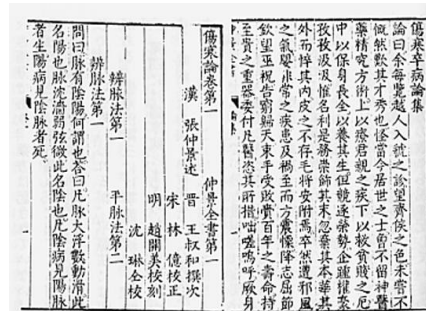 傷寒卒病論集
論曰余每覽越人入虢之診望齊侯之色未嘗不
慨然歎其才秀也怪當今居世之士曾不留神醫
藥精究方術上以療君親之疾下以救貧賤之厄
中以保身長全以養其生但競逐榮勢企踵權豪
孜孜汲汲惟名利是務崇飾其末忽棄其本華其
外而悴其內皮之不存毛將安附焉卒然遭邪風
之氣嬰非常之疾患及禍至而方震慄降志屈節
欽望巫祝告窮歸天束手受敗賫百年之壽命持
至貴之重器委付凡醫恣其所措咄嗟嗚呼厥身
傷寒論卷第一 仲景全書第一
漢 張仲景述 晉 王叔和撰次
宋 林 億校正
明 趙開美校刻
沈 琳仝校
辨脈法第一 平脈法第二
辨脈法第一
問曰脈有陰陽何謂也荅曰凡脈大浮數動滑此
名陽也脈沈濇弱弦微此名陰也凡陰病見陽脈
者生陽病見陰脈者死